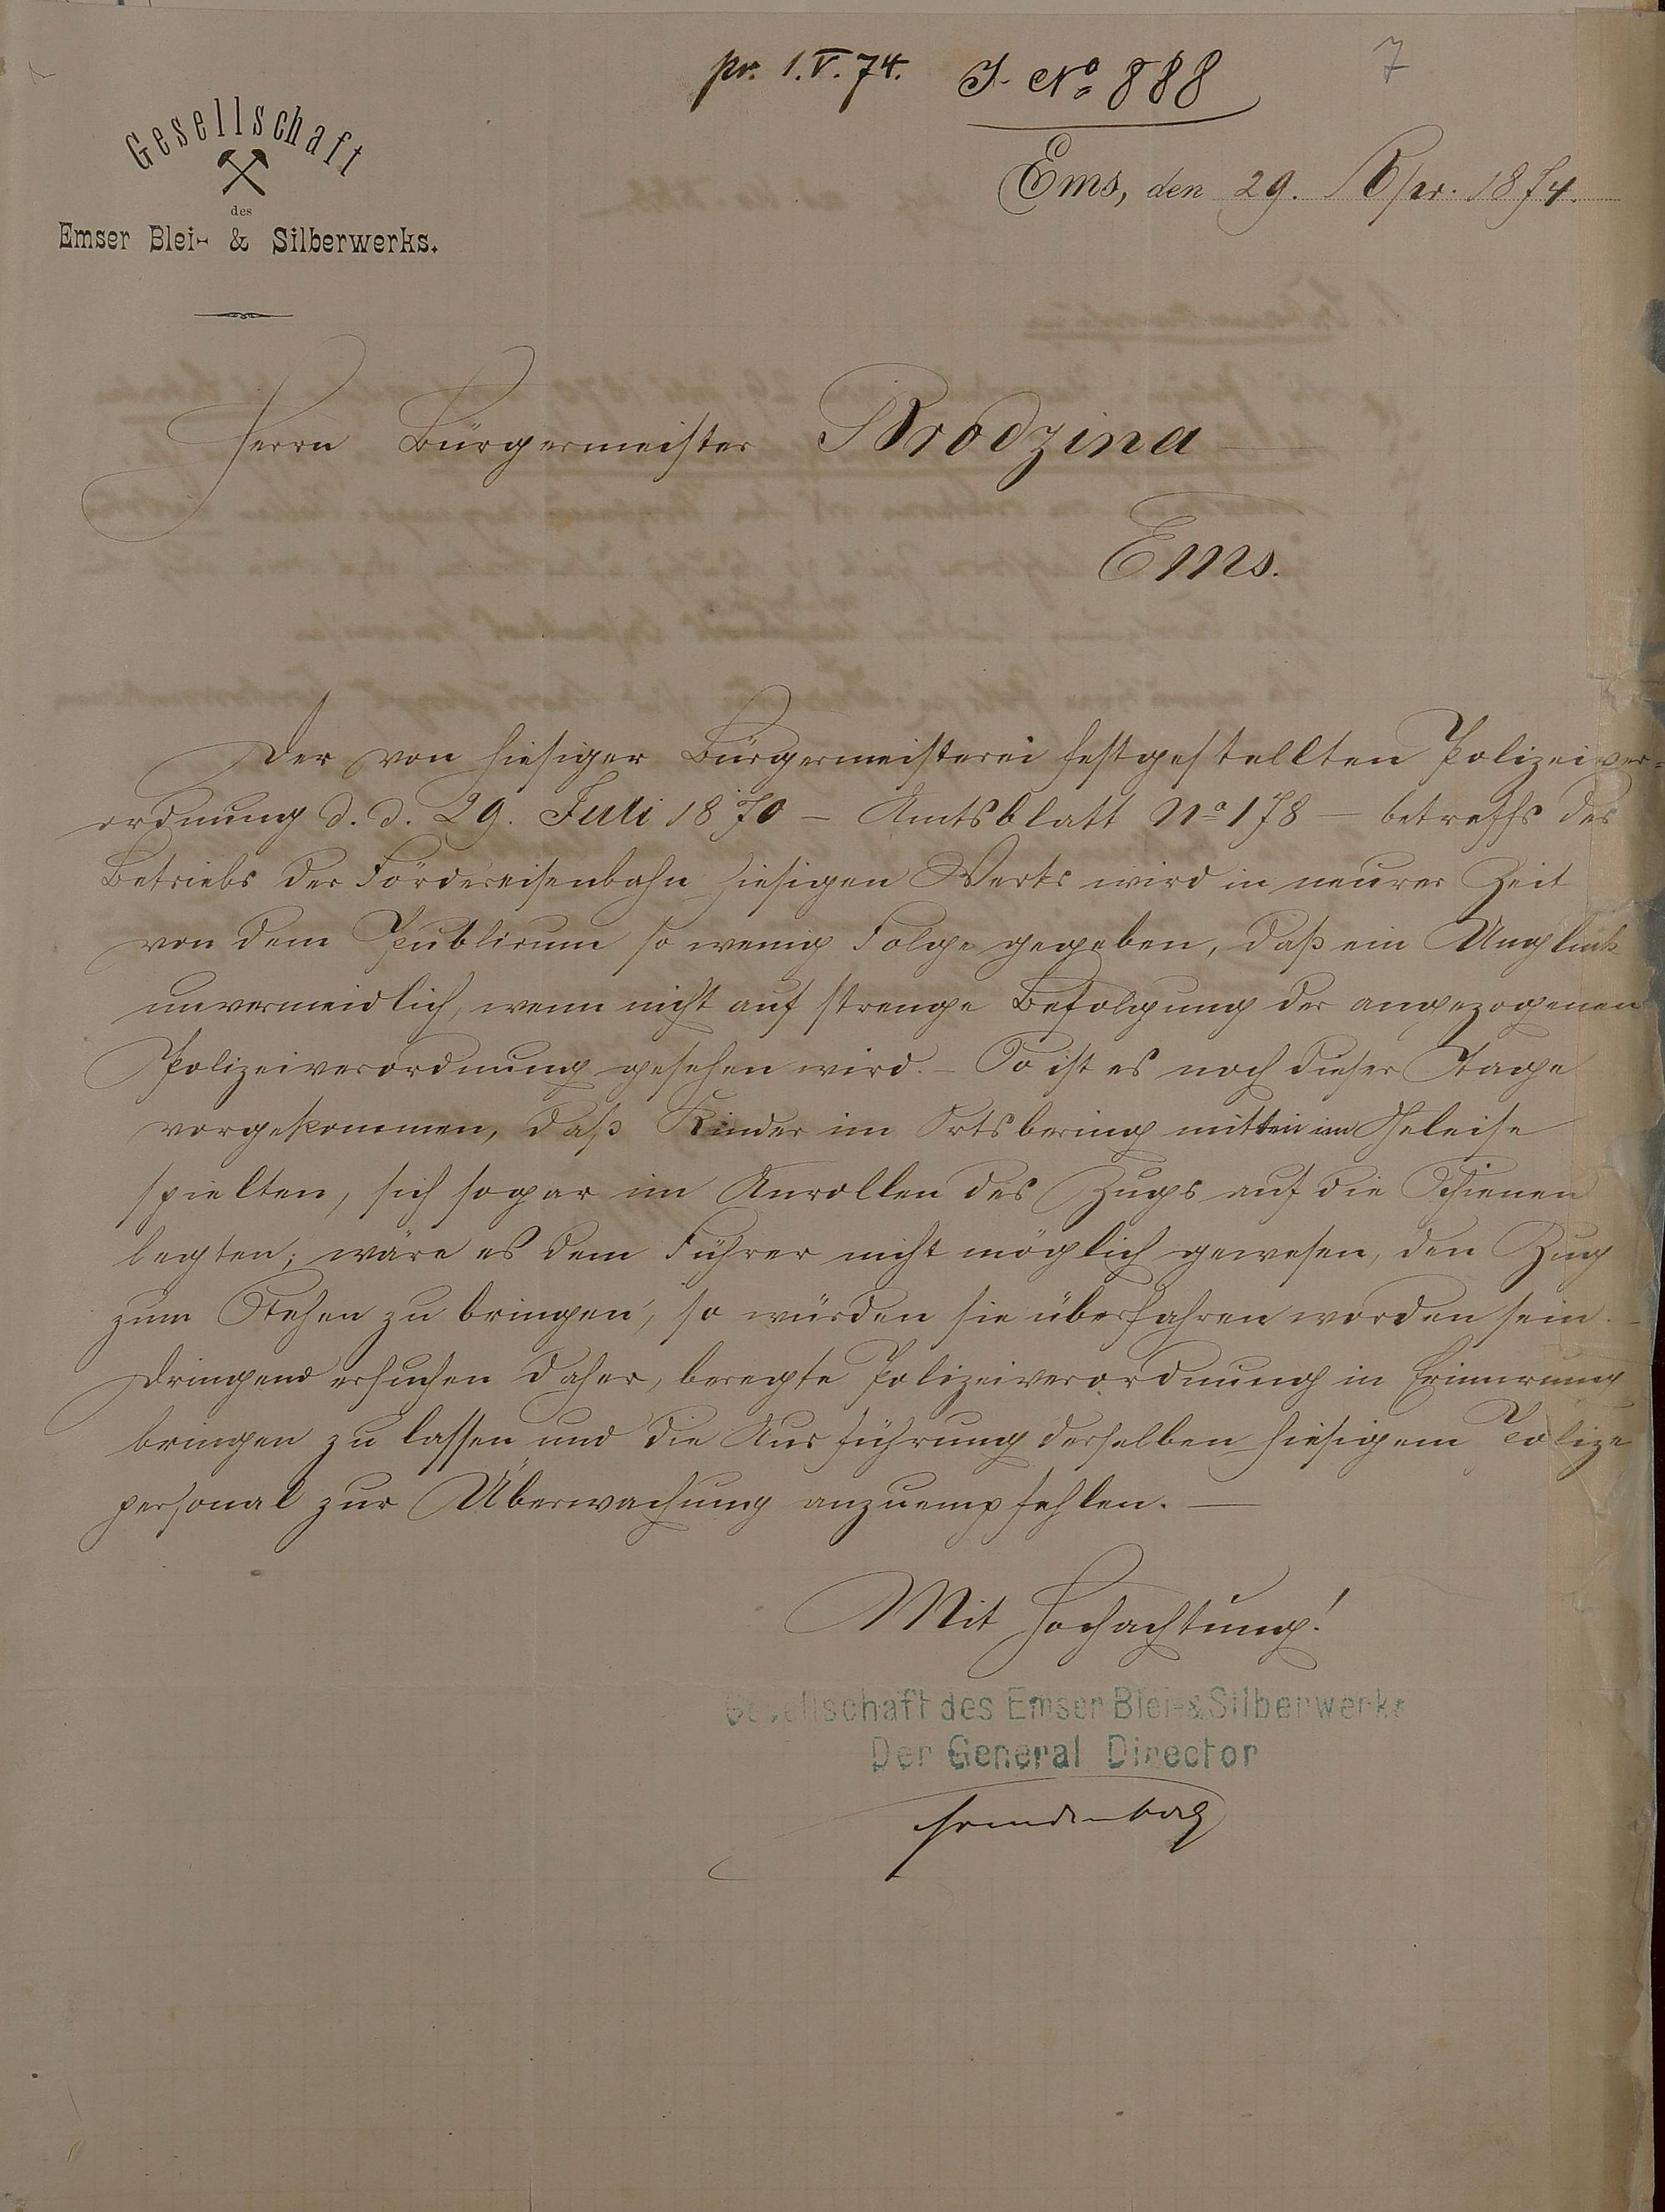 pr. 1.V.74. J. No 888
7
Gesellschaft
des
Emser Blei- & Silberwerks.
Ems, den 29. Apr. 1874.
Herrn Bürgermeister Brodzina
Ems.
Der von hiesiger Bürgermeisterei festgestellten Polizeiver=
ordnung d. d. 29. Juli 1870 – Amtsblatt No 178 – betreffs des
Betriebs der Fördereisenbahn hiesigen Werks wird in neurer Zeit
von dem Publicum so wenig Folge gegeben, daß ein Unglück
unvermeidlich, wenn nicht auf strenge Befolgung der angezogenen
Polizeiverordnung gesehen wird. – So ist es noch dieser Tage
vorgekommen, daß Kinder im Ortsbering mitten im Geleise
spielten, sich sogar im Anrollen des Zugs auf die Schienen
legten; wäre es dem Führer nicht möglich gewesen, den Zug
zum Stehen zu bringen, so würden sie überfahren worden sein. –
Dringend ersuchen daher, beregte Polizeiverordnung in Erinnerung
bringen zu lassen und die Ausführung derselben hiesigem Polize
personal zur Überwachung anzuempfehlen. —
Mit Hochachtung!
Gesellschaft des Emser Blei- & Silberwerks
Der General Director